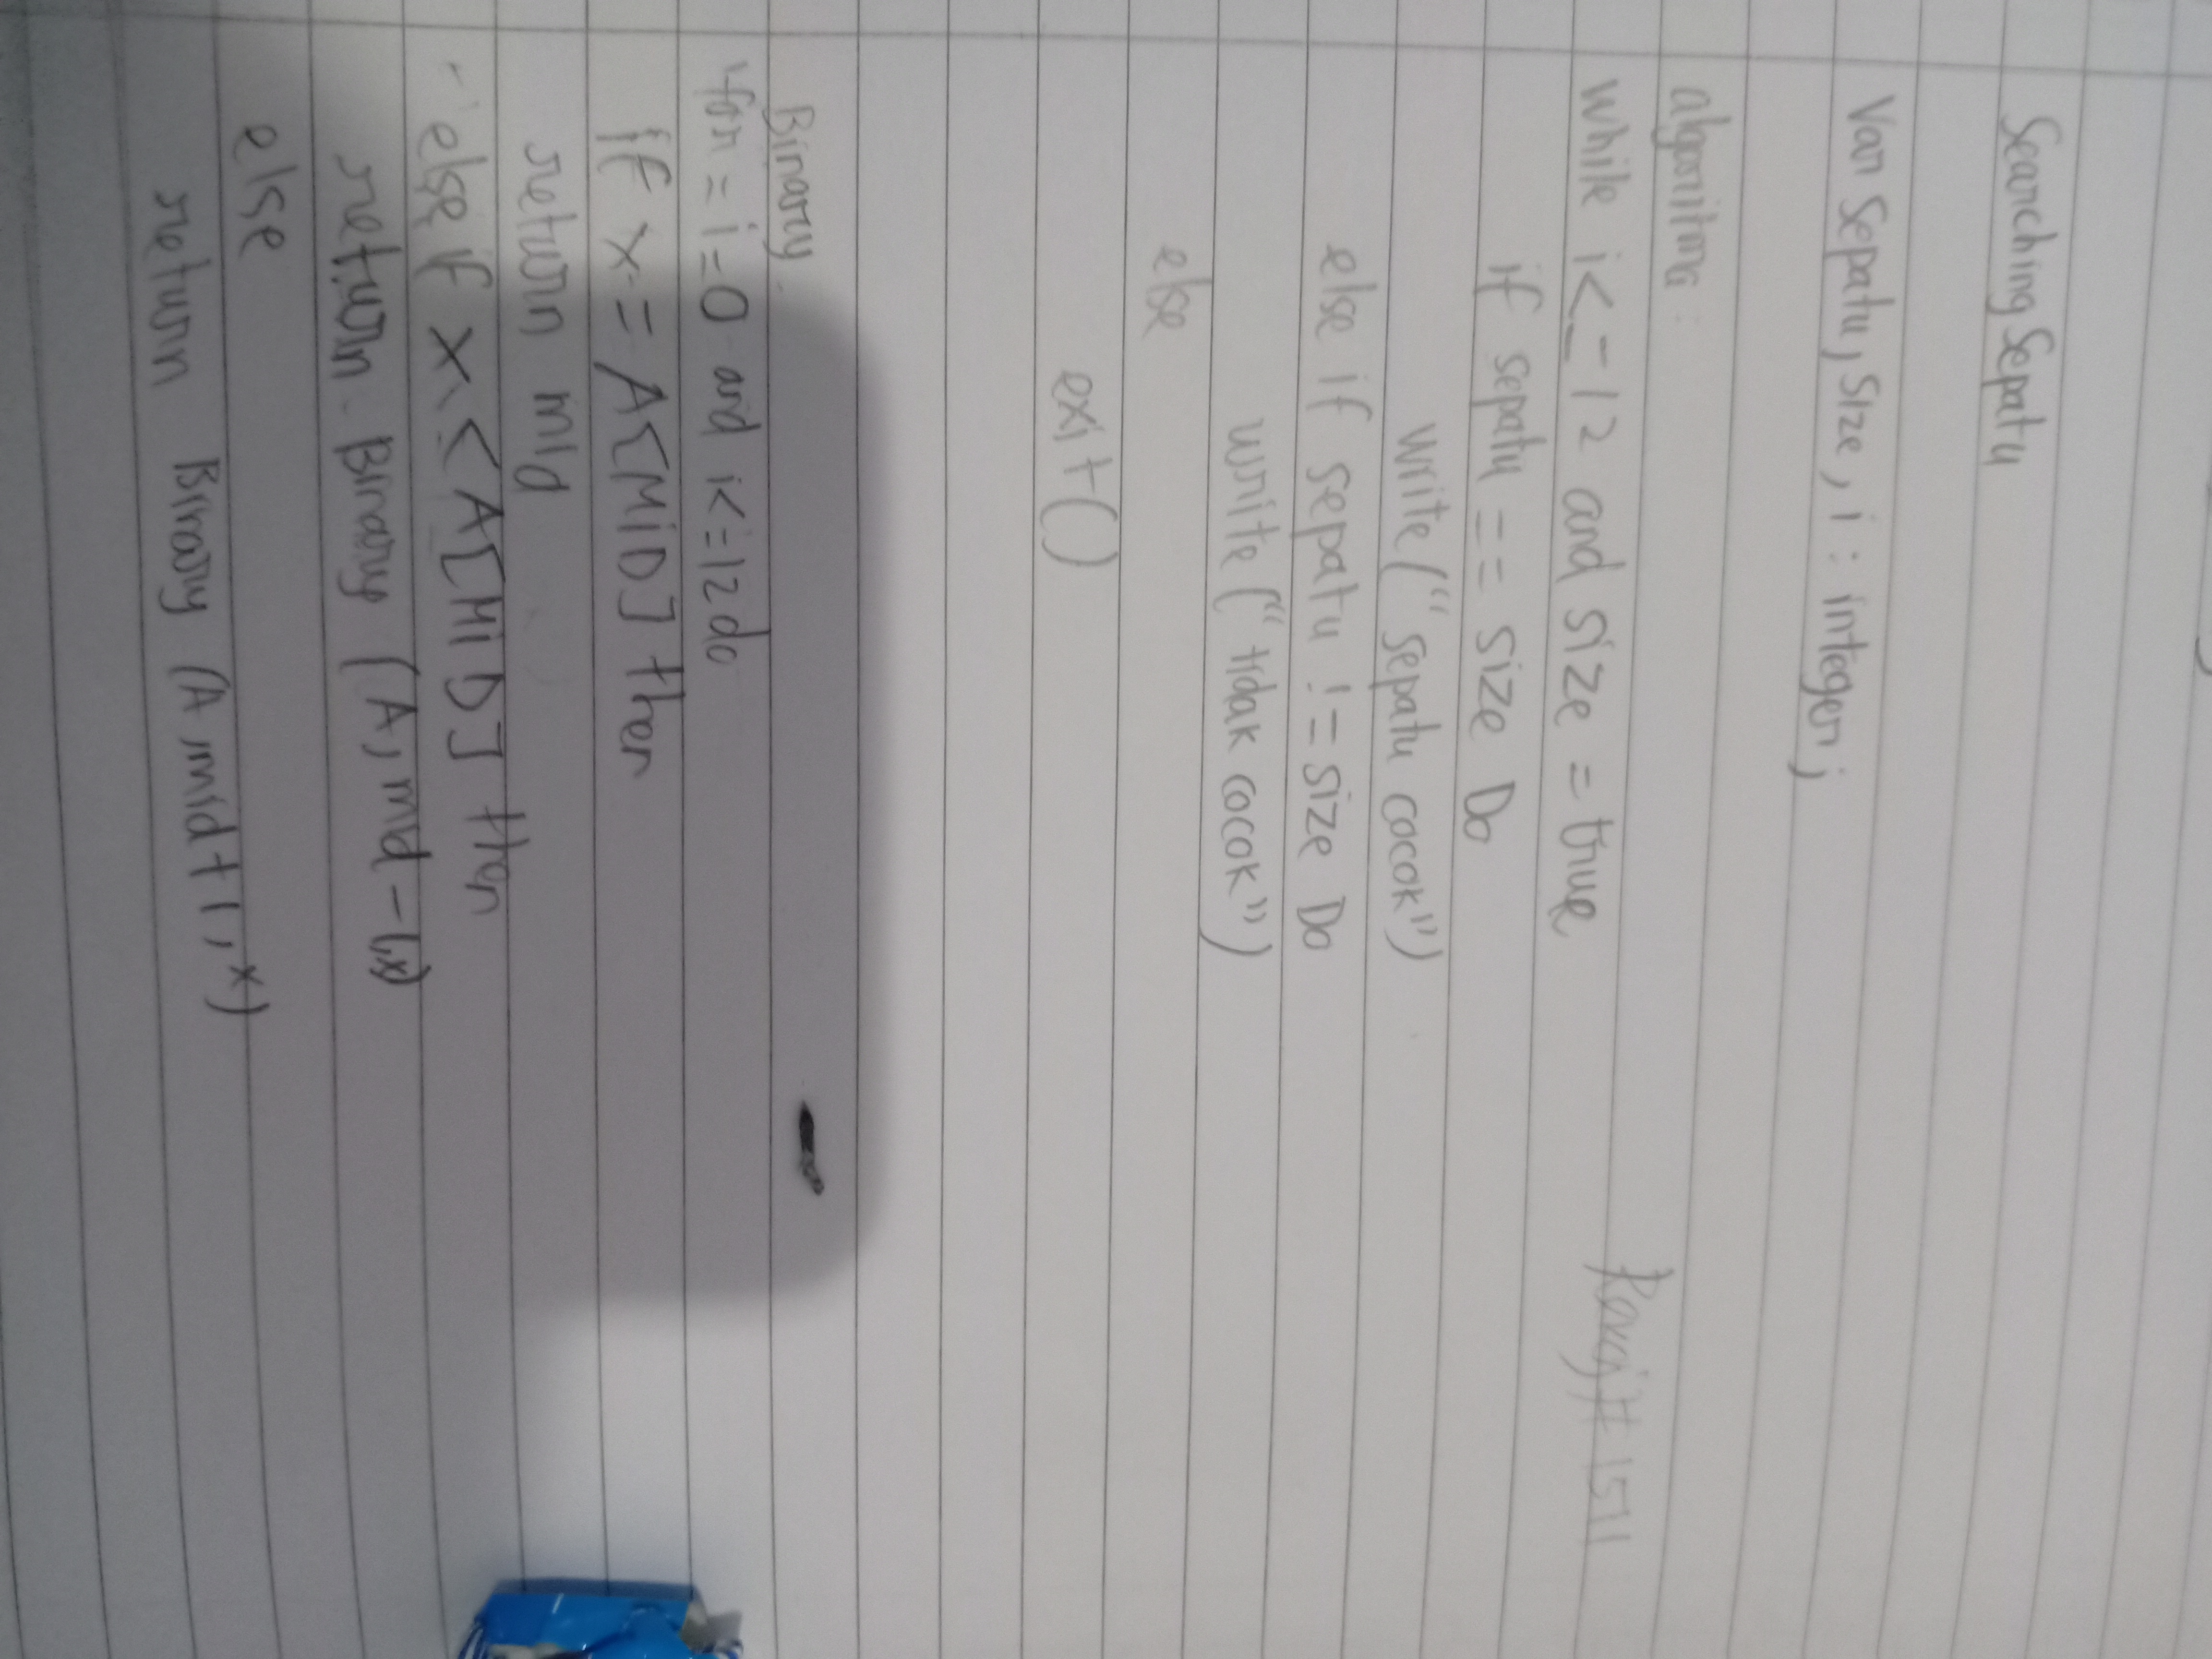 Searching Sepatu
Var Sepatu, Size, i : integer;
algoritma :
while i<=12 and size = true
if sepatu == size Do
write ("sepatu cocok")
else if sepatu != size Do
write ("tidak cocok")
else
exit()
# 1511
Binary
for = i=0 and i<=12 do
if x = A[MiD] then
return mid
else if x < A[MiD] then
return Binary (A, mid-1,x)
else
return Binary (A, mid+1, x)